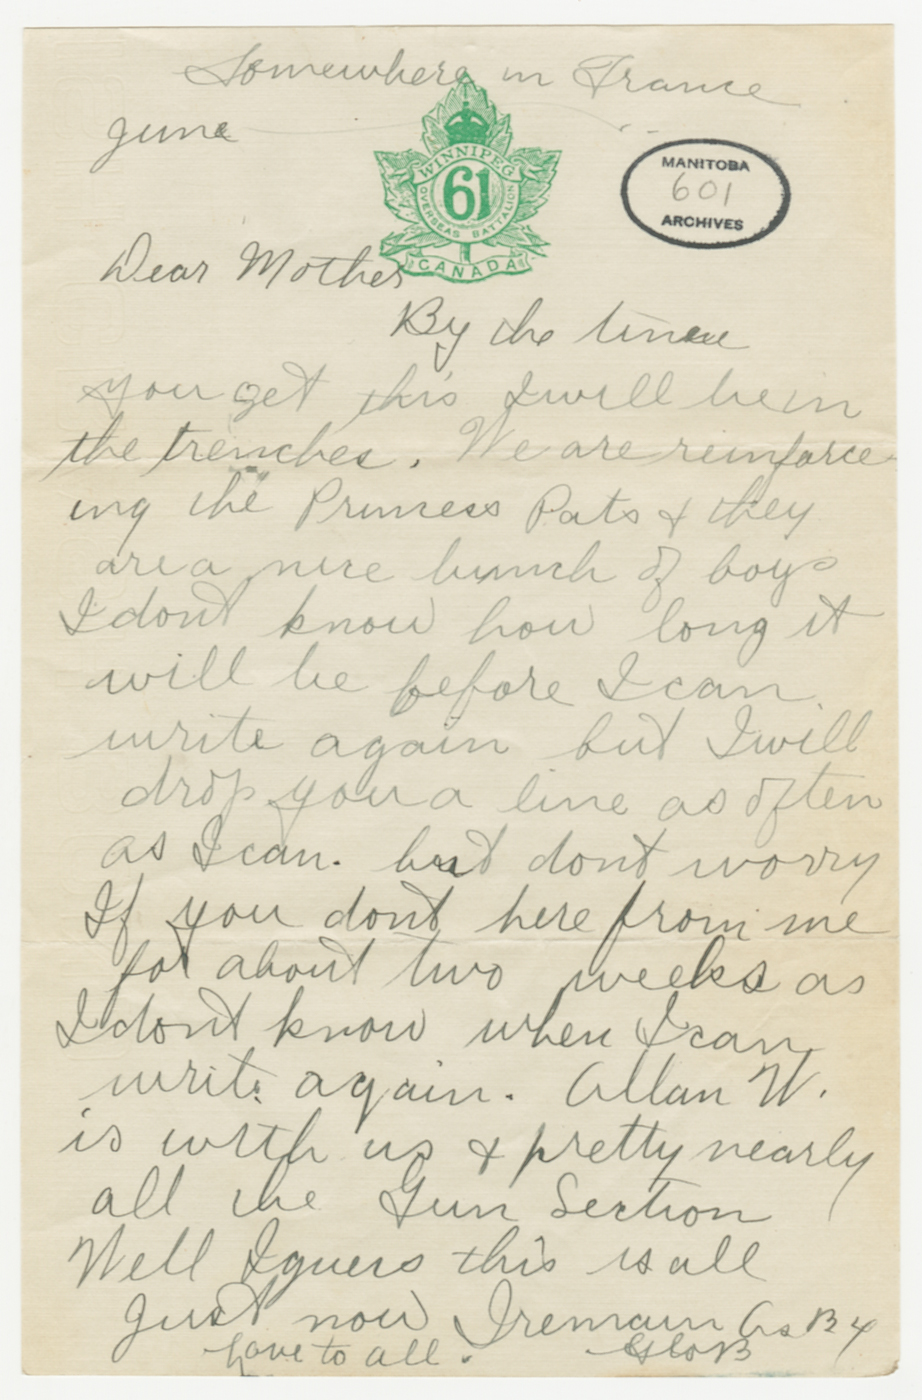 Somewhere in France
June
WINNIPEG
61
OVERSEAS BATTALION
CANADA
MANITOBA
601
ARCHIVES
Dear Mother
By the time
you get this I will be in
the trenches. We are reinforce
ing the Princess Pats & they
are a nice bunch of boys
I dont know how long it
will be before I can
write again but I will
drop you a line as often
as I can. but dont worry
If you dont here from me
for about two weeks as
I dont know when I can
write again. Allan W.
is with us & pretty nearly
all the Gun Section
Well I guess this is all
just now I remain As B 4
love to all.